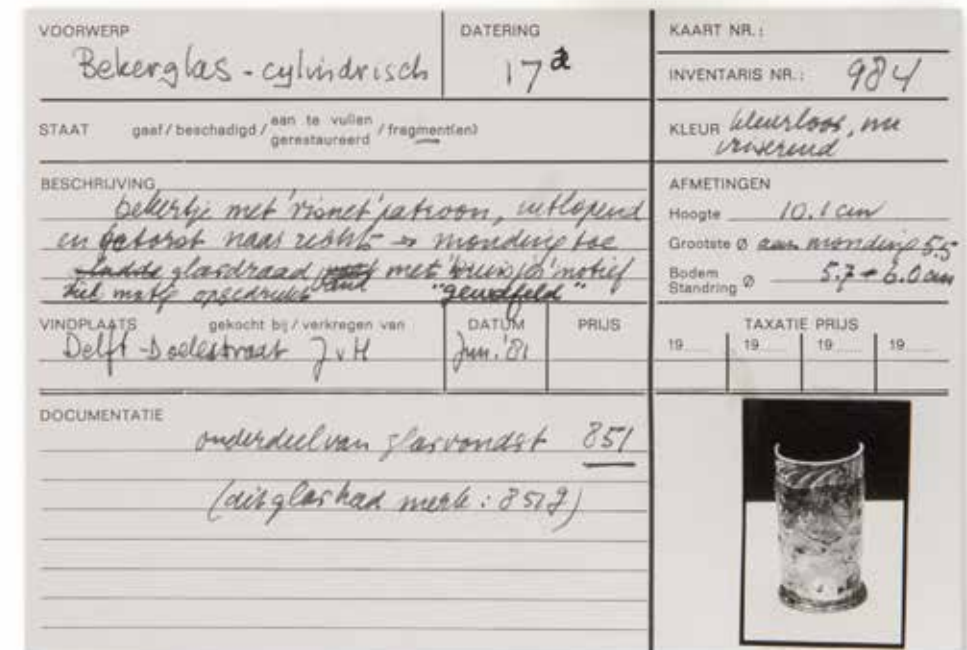 VOORWERP
Bekerglas - cylindrisch
DATERING
17 a
KAART NR.:
INVENTARIS NR.: 984
STAAT gaaf / beschadigd / aan te vullen gerestaureerd / fragment(en)
KLEUR kleurloos, nu
iriserend
BESCHRIJVING
bekertje met 'visnet' patroon, uitlopend
en getorst naar rechts monding toe
gladde glasdraad rand met 'kruisjes' motief
opgedrukt "gewafeld"
AFMETINGEN
Hoogte 10.1 cm
Grootste Ø aan monding 5.5
Bodem Standring Ø 5.7 - 6.0 cm
VINDPLAATS gekocht bij / verkregen van
Delft - Doelestraat J v H
DATUM
Jun. '81
PRIJS
TAXATIE PRIJS
19...... 19...... 19...... 19......
DOCUMENTATIE
onderdeel van glasvondst 851
(dit glas had merk: 851 J)